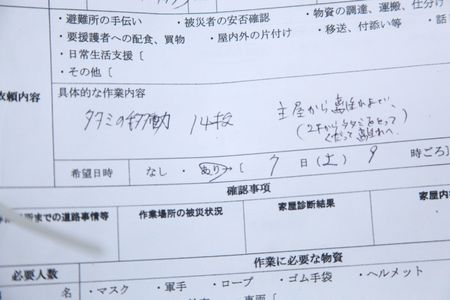 ・避難所の手伝い ・被災者の安否確認 ・物資の調達、運搬、仕分け
・要援護者への配食、買物 ・屋内外の片付け ・移送、付添い等
・日常生活支援〔
・その他〔
依頼内容
具体的な作業内容
タタミの移動 14枚 主屋から離れまで、
(2FからタタミをとってくだってRれへ
希望日時 なし ・ あり→〔 7 日(土) 9 時ごろ〕
確認事項
までの道路事情等 作業場所の被災状況 家屋診断結果 家屋内
作業に必要な物資
必要人数
名 ・マスク ・軍手 ・ロープ ・ゴム手袋 ・ヘルメット
車両〔